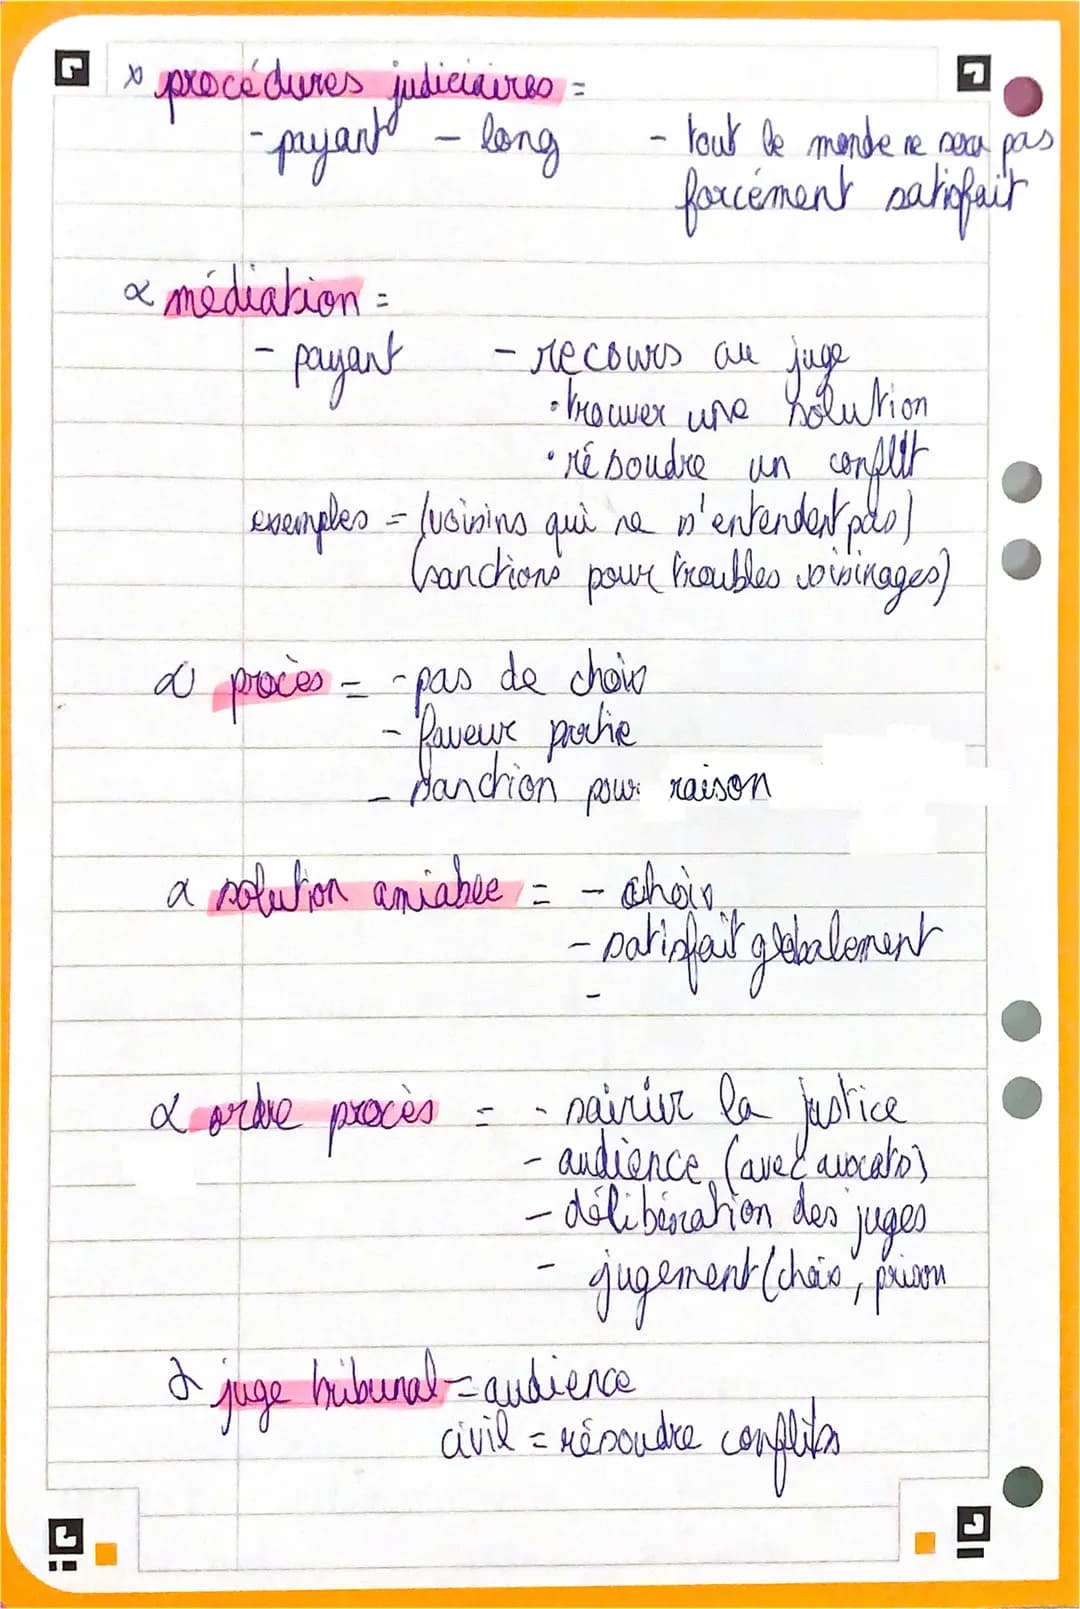 procédures judiciaires =
- payant - long - tout le monde ne sera pas
forcément satisfait
α médiation =
- payant - recours au juge
• trouver une solution
• résoudre un conflit
exemples = (voisins qui ne s'entendent pas)
(sanctions pour troubles voisinages)
α procès = - pas de choix
- faveur partie
- sanction pour raison
α solution amiable = - choix
- satisfait globalement
-
α ordre procès = - saisir la justice
- audience (avec avocats)
- délibération des juges
- jugement (choix, prison
α juge tribunal = audience
civil = résoudre conflits